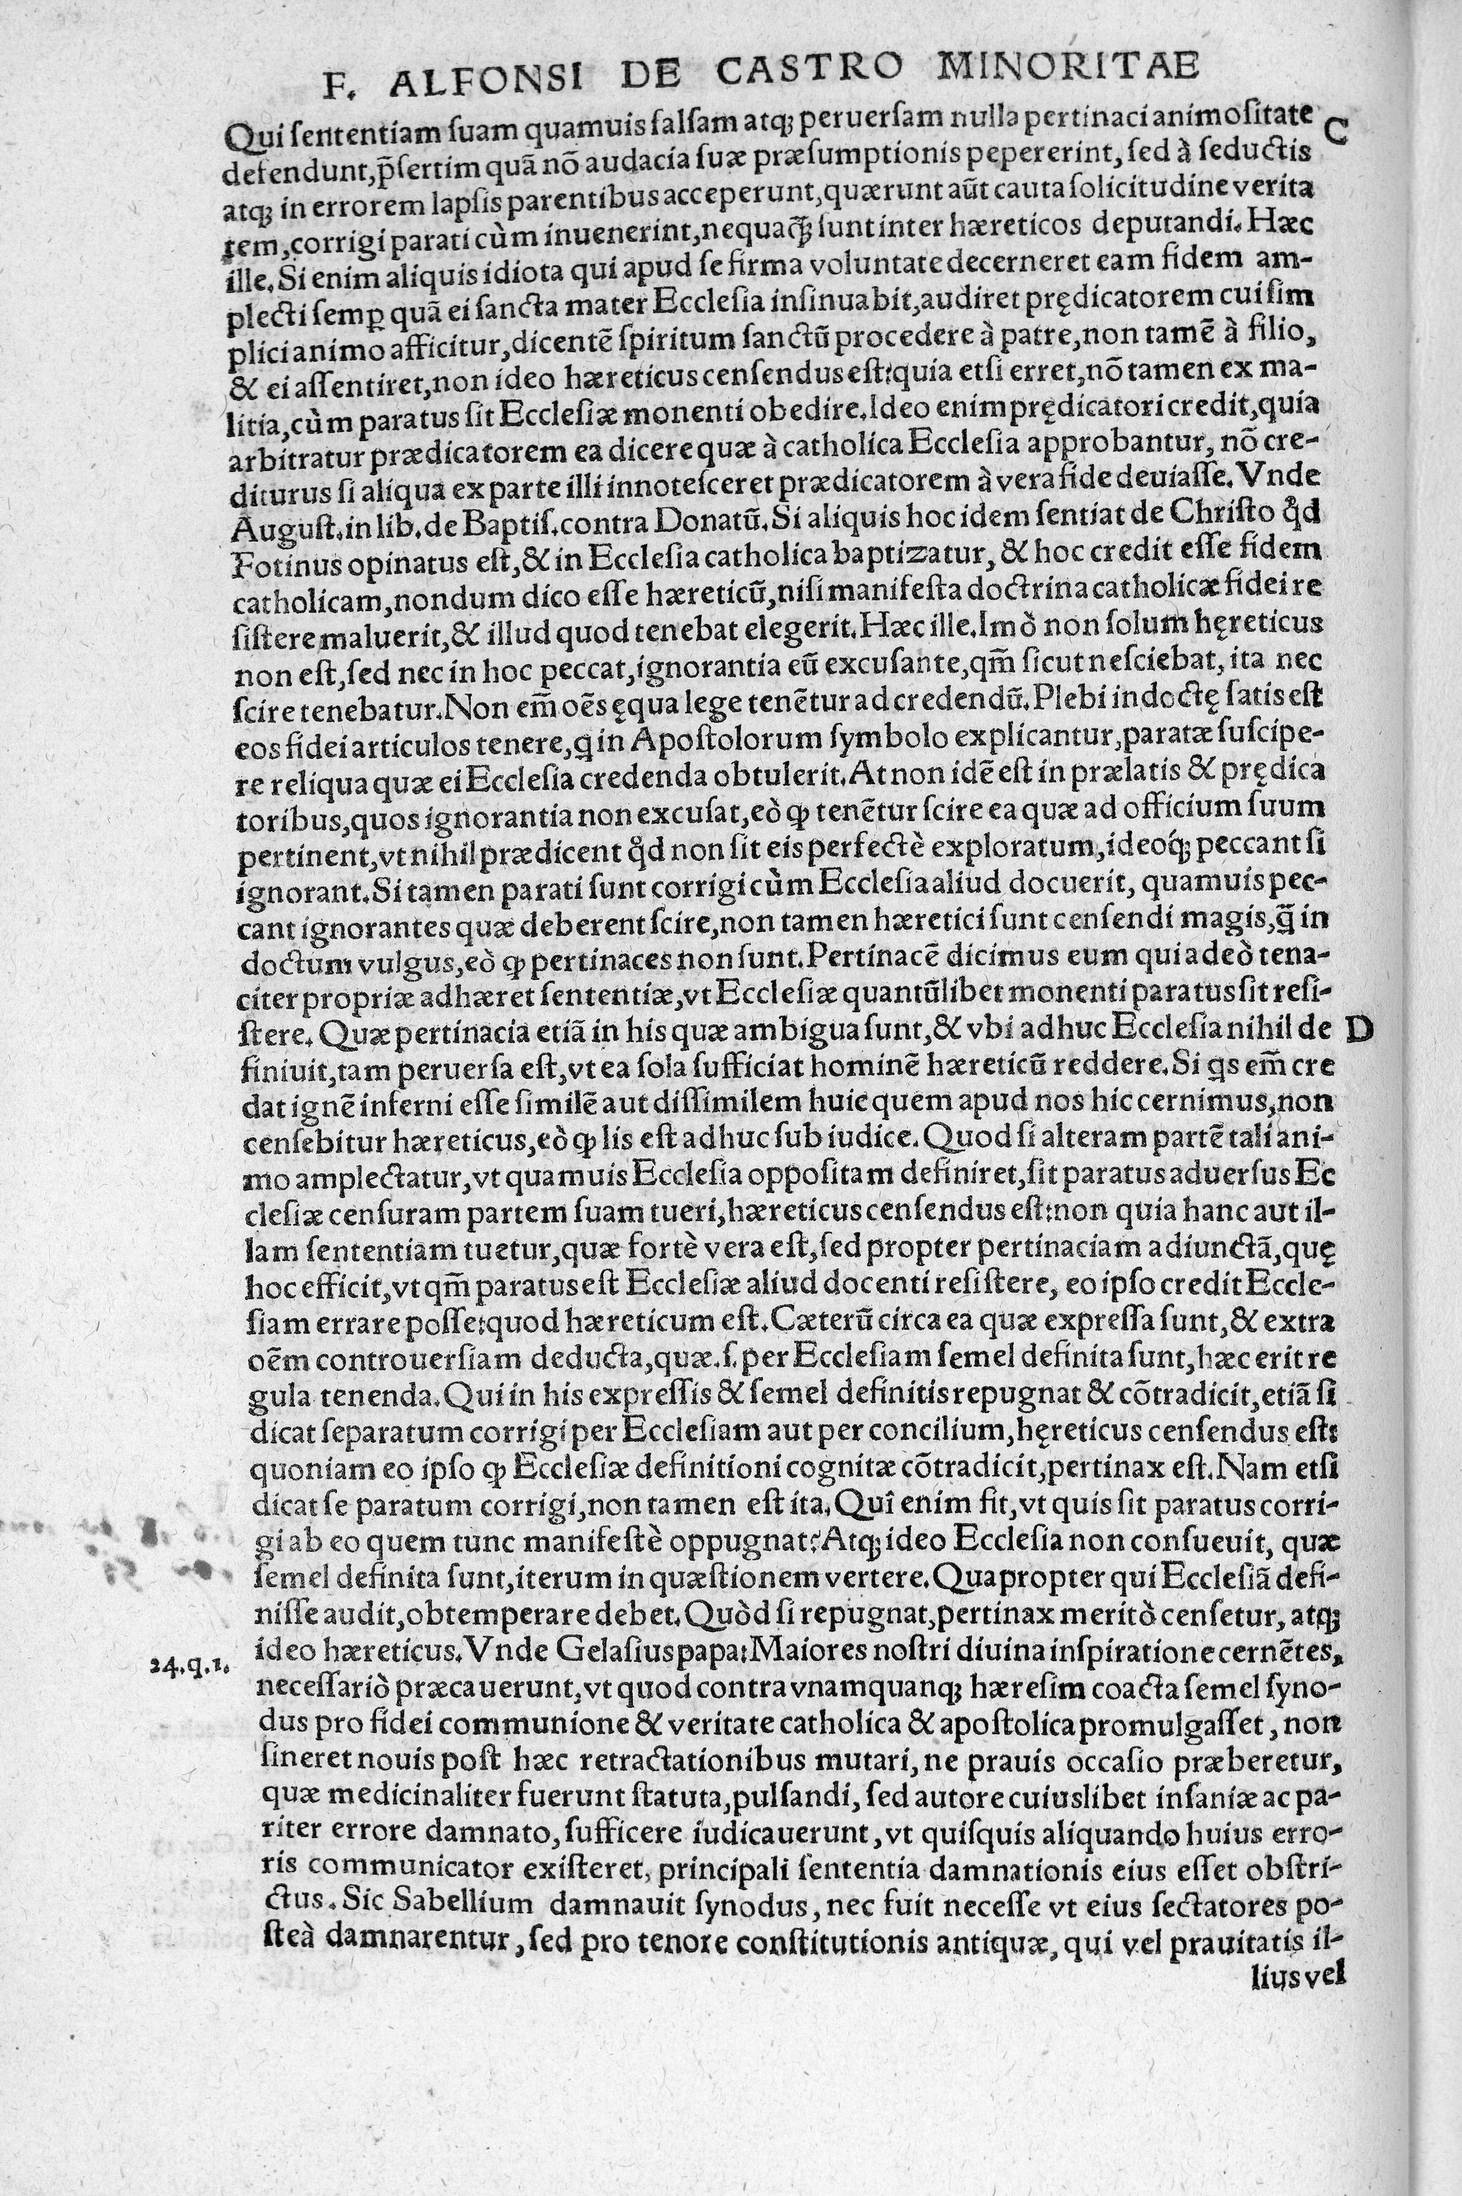 F. ALFONSI DE CASTRO MINORITAE
Qui ſententiam ſuam quamuis falſam atq; peruerſam nulla pertinaci animoſitate
C
defendunt, p̄ſertim quā nō audacia ſuæ præſumptionis pepererint, ſed à ſeductis
atq; in errorem lapſis parentibus acceperunt, quærunt aūt cauta ſolicitudine verita
tem, corrigi parati cùm inuenerint, nequaq̃ ſunt inter hæreticos deputandi. Hæc
ille. Si enim aliquis idiota qui apud ſe firma voluntate decerneret eam fidem am-
plecti ſemꝑ quā ei ſancta mater Eccleſia inſinuabit, audiret prędicatorem cui ſim
plici animo afficitur, dicentē ſpiritum ſanctū procedere à patre, non tamē à filio,
& ei aſſentiret, non ideo hæreticus cenſendus eſt: quia etſi erret, nō tamen ex ma-
litia, cùm paratus ſit Eccleſiæ monenti obedire. Ideo enim prędicatori credit, quia
arbitratur prædicatorem ea dicere quæ à catholica Eccleſia approbantur, nō cre-
diturus ſi aliqua ex parte illi innoteſceret prædicatorem à vera fide deuiaſſe. Vnde
Auguſt. in lib. de Baptiſ. contra Donatū. Si aliquis hoc idem ſentiat de Chriſto qͦd
Fotinus opinatus eſt, & in Eccleſia catholica baptizatur, & hoc credit eſſe fidem
catholicam, nondum dico eſſe hæreticū, niſi manifeſta doctrina catholicæ fidei re
ſiſtere maluerit, & illud quod tenebat elegerit. Hæc ille. Imò non ſolum hęreticus
non eſt, ſed nec in hoc peccat, ignorantia eū excuſante, qm̄ ſicut neſciebat, ita nec
ſcire tenebatur. Non em̄ oēs ęqua lege tenētur ad credendū. Plebi indoctę ſatis eſt
eos fidei articulos tenere, q̄ in Apoſtolorum ſymbolo explicantur, paratæ ſuſcipe-
re reliqua quæ ei Eccleſia credenda obtulerit. At non idē eſt in prælatis & prędica
toribus, quos ignorantia non excuſat, eò ꝙ tenētur ſcire ea quæ ad officium ſuum
pertinent, vt nihil prædicent qͦd non ſit eis perfectè exploratum, ideoq́; peccant ſi
ignorant. Si tamen parati ſunt corrigi cùm Eccleſia aliud docuerit, quamuis pec-
cant ignorantes quæ deberent ſcire, non tamen hæretici ſunt cenſendi magis, q̃ in
doctum vulgus, eò ꝙ pertinaces non ſunt. Pertinacē dicimus eum qui adeò tena-
citer propriæ adhæret ſententiæ, vt Eccleſiæ quantūlibet monenti paratus ſit reſi-
ſtere. Quæ pertinacia etiā in his quæ ambigua ſunt, & vbi adhuc Eccleſia nihil de
D
finiuit, tam peruerſa eſt, vt ea ſola ſufficiat hominē hæreticū reddere. Si qs em̄ cre
dat ignē inferni eſſe ſimilē aut diſſimilem huic quem apud nos hic cernimus, non
cenſebitur hæreticus, eò ꝙ lis eſt adhuc ſub iudice. Quod ſi alteram partē tali ani-
mo amplectatur, vt quamuis Eccleſia oppoſitam definiret, ſit paratus aduerſus Ec
cleſiæ cenſuram partem ſuam tueri, hæreticus cenſendus eſt: non quia hanc aut il-
lam ſententiam tuetur, quæ fortè vera eſt, ſed propter pertinaciam adiunctā, quę
hoc efficit, vt qm̄ paratus eſt Eccleſiæ aliud docenti reſiſtere, eo ipſo credit Eccle-
ſiam errare poſſe: quod hæreticum eſt. Cæterū circa ea quæ expreſſa ſunt, & extra
oēm controuerſiam deducta, quæ .ſ. per Eccleſiam ſemel definita ſunt, hæc erit re
gula tenenda. Qui in his expreſſis & ſemel definitis repugnat & cōtradicit, etiā ſi
dicat ſe paratum corrigi per Eccleſiam aut per concilium, hęreticus cenſendus eſt:
quoniam eo ipſo ꝙ Eccleſiæ definitioni cognitæ cōtradicit, pertinax eſt. Nam etſi
dicat ſe paratum corrigi, non tamen eſt ita. Quî enim fit, vt quis ſit paratus corri-
gi ab eo quem tunc manifeſtè oppugnat? Atq; ideo Eccleſia non conſueuit, quæ
ſemel definita ſunt, iterum in quæſtionem vertere. Quapropter qui Eccleſiā defi-
niſſe audit, obtemperare debet. Quòd ſi repugnat, pertinax meritò cenſetur, atq;
ideo hæreticus. Vnde Gelaſius papa: Maiores noſtri diuina inſpiratione cernētes,
24.q.1.
neceſſariò præcauerunt, vt quod contra vnamquanq; hæreſim coacta ſemel ſyno-
dus pro fidei communione & veritate catholica & apoſtolica promulgaſſet, non
ſineret nouis poſt hæc retractationibus mutari, ne prauis occaſio præberetur,
quæ medicinaliter fuerunt ſtatuta, pulſandi, ſed autore cuiuslibet inſaniæ ac pa-
riter errore damnato, ſufficere iudicauerunt, vt quiſquis aliquando huius erro-
ris communicator exiſteret, principali ſententia damnationis eius eſſet obſtri-
ctus. Sic Sabellium damnauit ſynodus, nec fuit neceſſe vt eius ſectatores po-
ſteà damnarentur, ſed pro tenore conſtitutionis antiquæ, qui vel prauitatis il-
lius vel